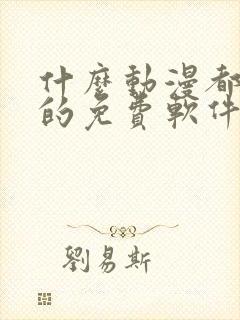 什麼動漫都
的免費軟件
劉易斯